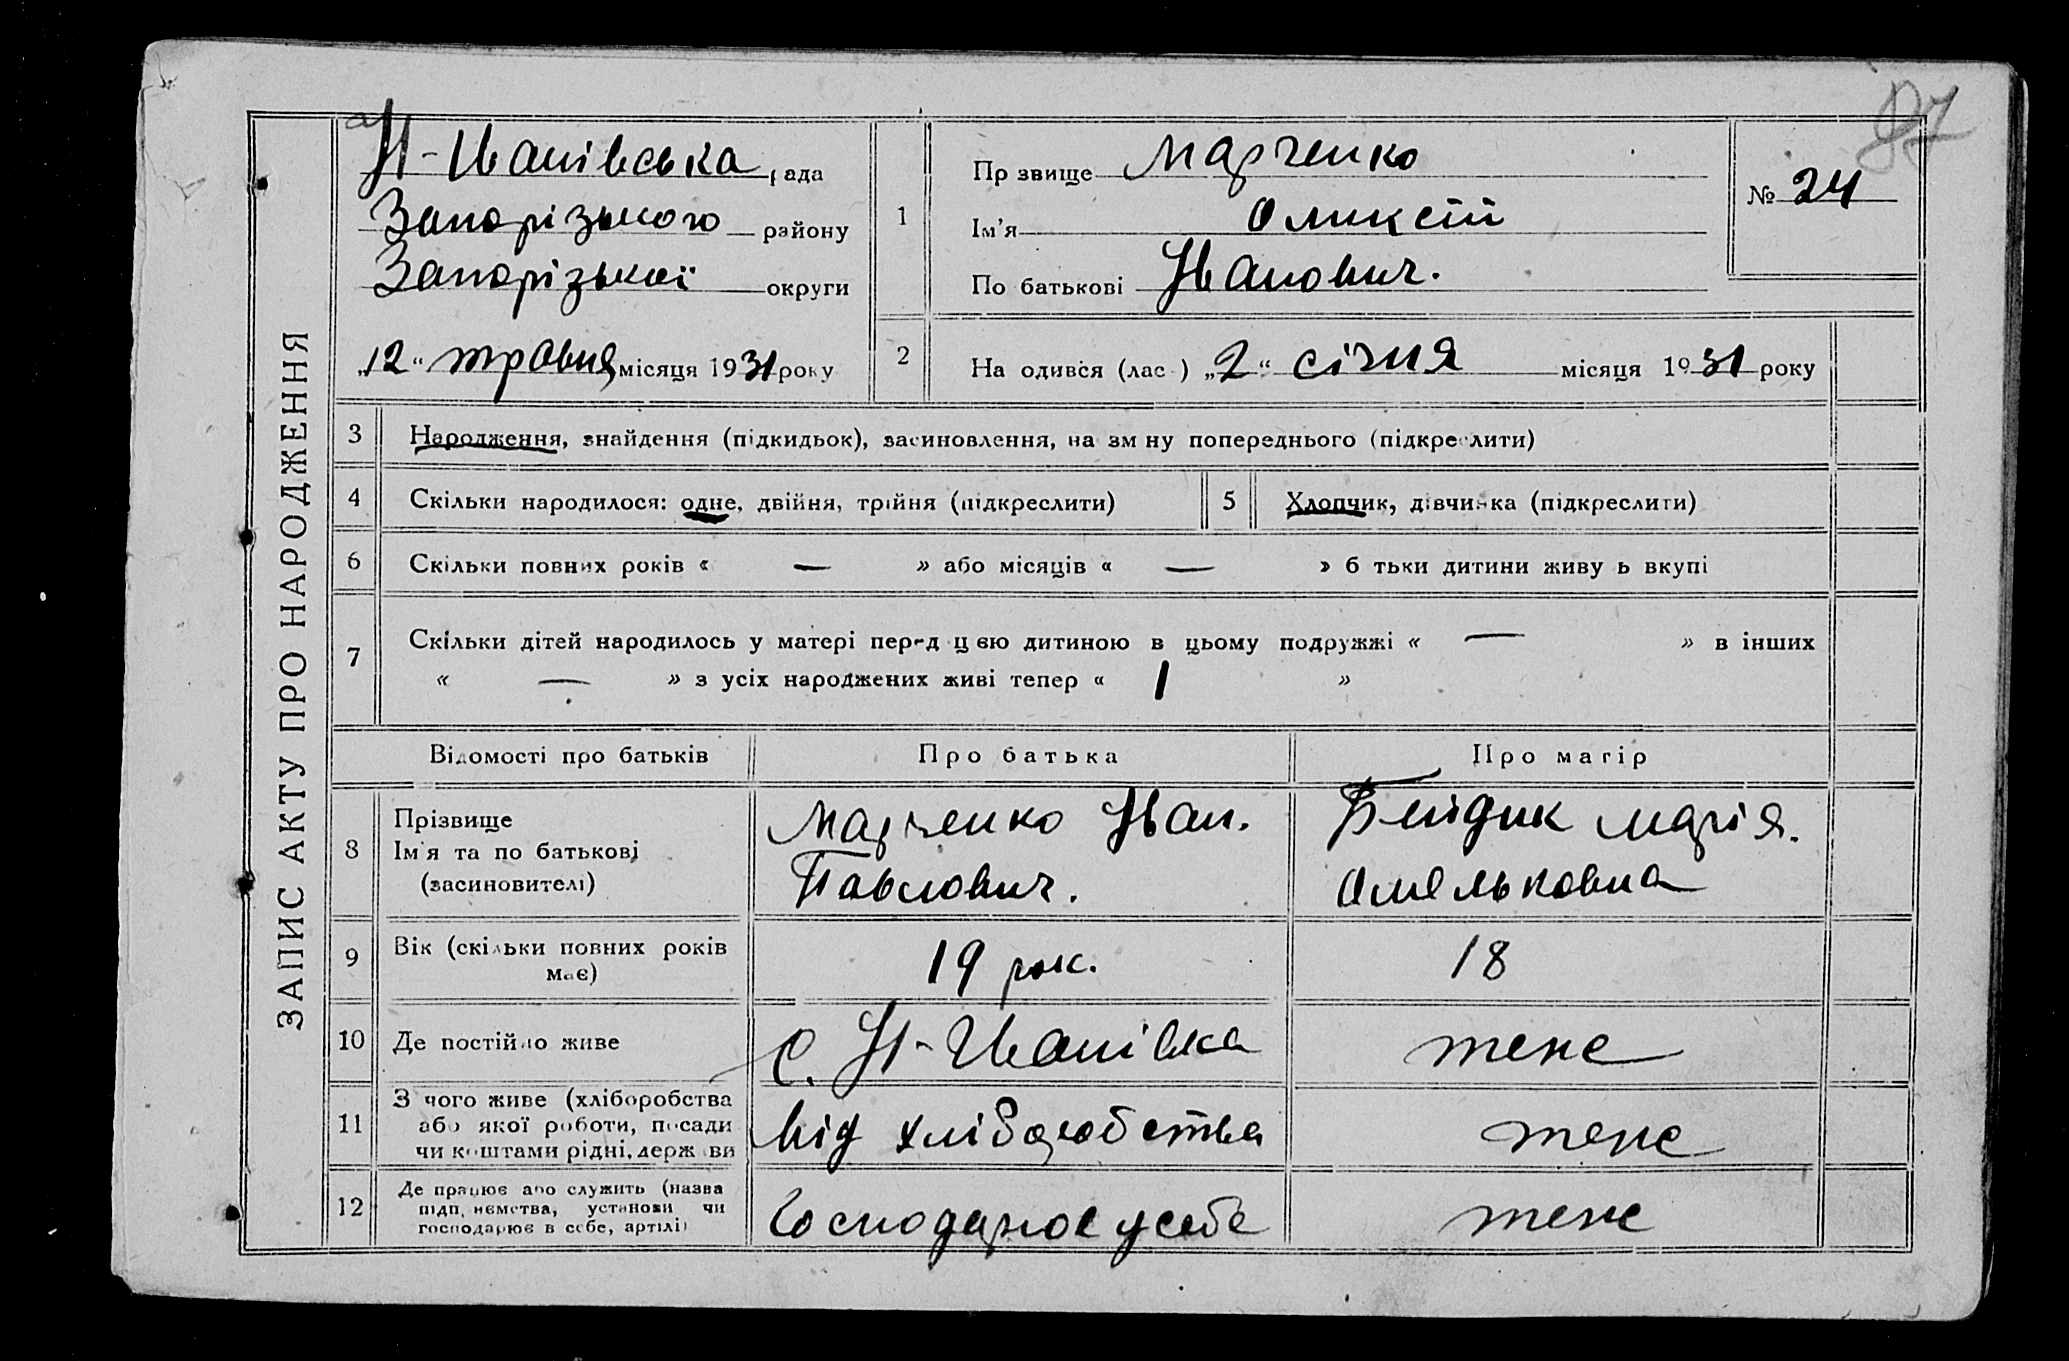 87
ЗАПИС АКТУ ПРО НАРОДЖЕННЯ
Н-Іванівська рада
Запорізького району
Запорізької округи
„12“ травня місяця 1931 року
1
Пр звище Марченко
Ім’я Оликсій
По батькові Іванович.
№ 24
2
На одився (лас ) „2“ січня місяця 1931 року
3 Народження, знайдення (підкидьок), засиновлення, на зм ну попереднього (підкреслити)
4 Скільки народилося: одне, двійня, трійня (підкреслити) 5 Хлопчик, дівчинка (підкреслити)
6 Скільки повних років « — » або місяців « — » б тьки дитини живу ь вкупі
7 Скільки дітей народилось у матері перед ц єю дитиною в цьому подружжі « — » в інших
« — » з усіх народжених живі тепер « 1 »
Відомості про батьків Про батька Про матір
8 Прізвище
Ім’я та по батькові
(засиновителі)
Марченко Іван.
Павлович.
Бейдик Марія.
Омельковна
9 Вік (скільки повних років
має)
19 рок.
18
10 Де постійно живе
с. Н-Іванівка
теже
11 З чого живе (хліборобства
або якої роботи, посади
чи коштами рідні, держ ви
від хліборобства
теже
12 Де працює або служить (назва
підп, иємства, установи чи
господарює в себе, артілі)
Господарює у себе
теже